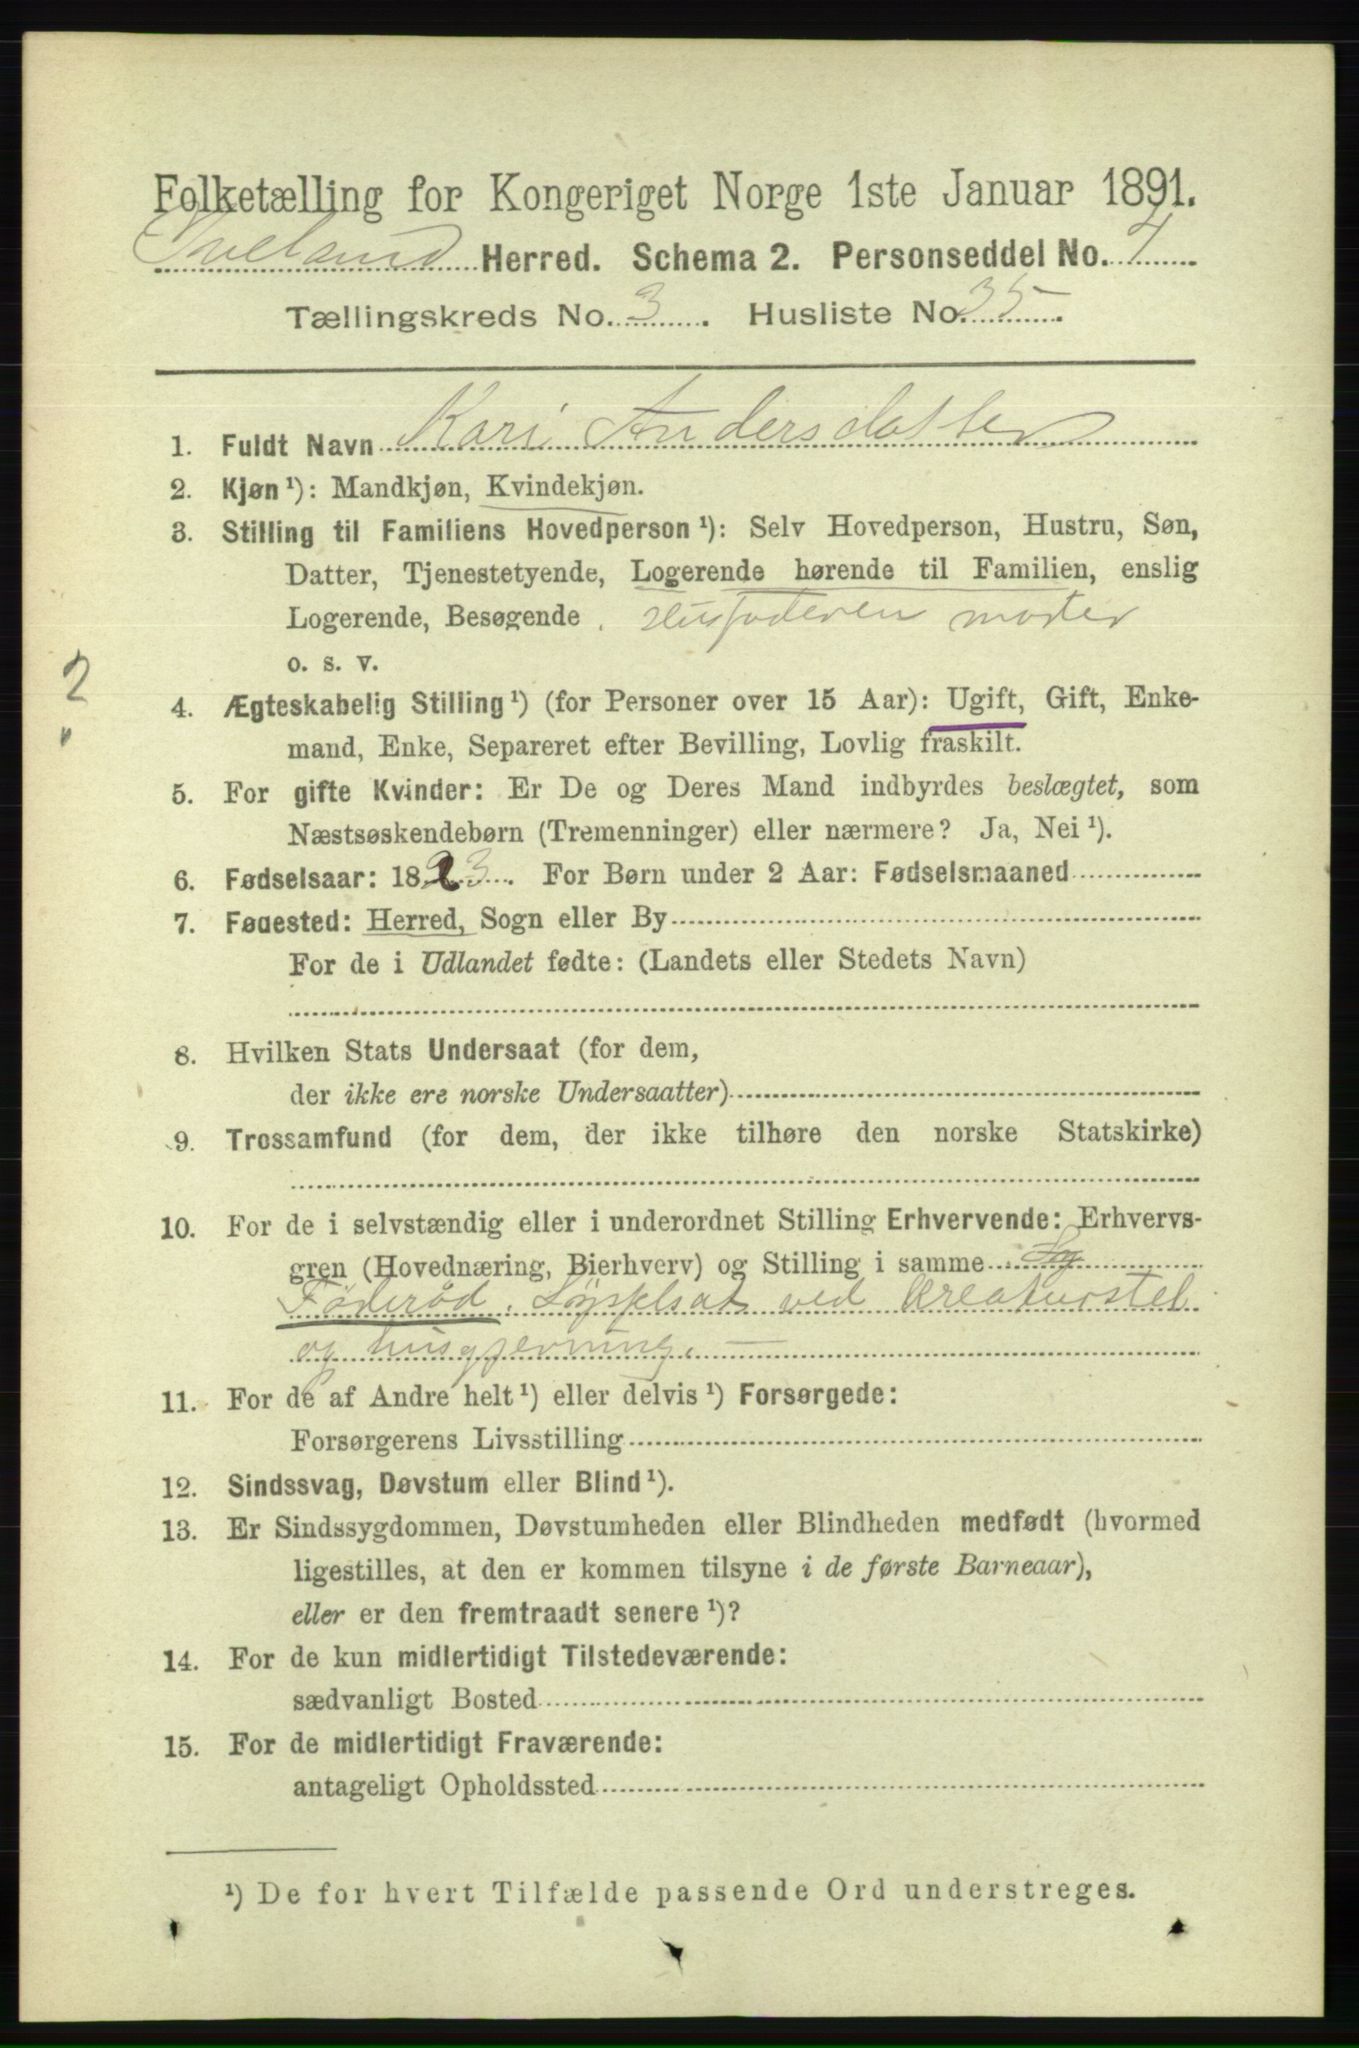 Folketælling for Kongeriget Norge 1ste Januar 1891.
Iveland Herred. Schema 2. Personseddel No. 4
Tællingskreds No. 3. Husliste No. 35.
1. Fuldt Navn Kari Andersdatter
2. Kjøn ¹): Mandkjøn, Kvindekjøn.
3. Stilling til Familiens Hovedperson ¹): Selv Hovedperson, Hustru, Søn,
Datter, Tjenestetyende, Logerende hørende til Familien, enslig
Logerende, Besøgende. Husfaderen moder
o. s. v.
2
4. Ægteskabelig Stilling ¹) (for Personer over 15 Aar): Ugift, Gift, Enke-
mand, Enke, Separeret efter Bevilling, Lovlig fraskilt.
5. For gifte Kvinder: Er De og Deres Mand indbyrdes beslægtet, som
Næstsøskendebørn (Tremenninger) eller nærmere? Ja, Nei ¹).
6. Fødselsaar: 1823. For Børn under 2 Aar: Fødselsmaaned
7. Fødested: Herred, Sogn eller By
For de i Udlandet fødte: (Landets eller Stedets Navn)
8. Hvilken Stats Undersaat (for dem,
der ikke ere norske Undersaatter)
9. Trossamfund (for dem, der ikke tilhøre den norske Statskirke)
10. For de i selvstændig eller i underordnet Stilling Erhvervende: Erhvervs-
gren (Hovednæring, Bierhverv) og Stilling i samme
Føderåd. Sysselsat ved kreaturstel
og husgjerning. —
11. For de af Andre helt ¹) eller delvis ¹) Forsørgede:
Forsørgerens Livsstilling
12. Sindssvag, Døvstum eller Blind ¹).
13. Er Sindssygdommen, Døvstumheden eller Blindheden medfødt (hvormed
ligestilles, at den er kommen tilsyne i de første Barneaar),
eller er den fremtraadt senere ¹)?
14. For de kun midlertidigt Tilstedeværende:
sædvanligt Bosted
15. For de midlertidigt Fraværende:
antageligt Opholdssted
¹) De for hvert Tilfælde passende Ord understreges.